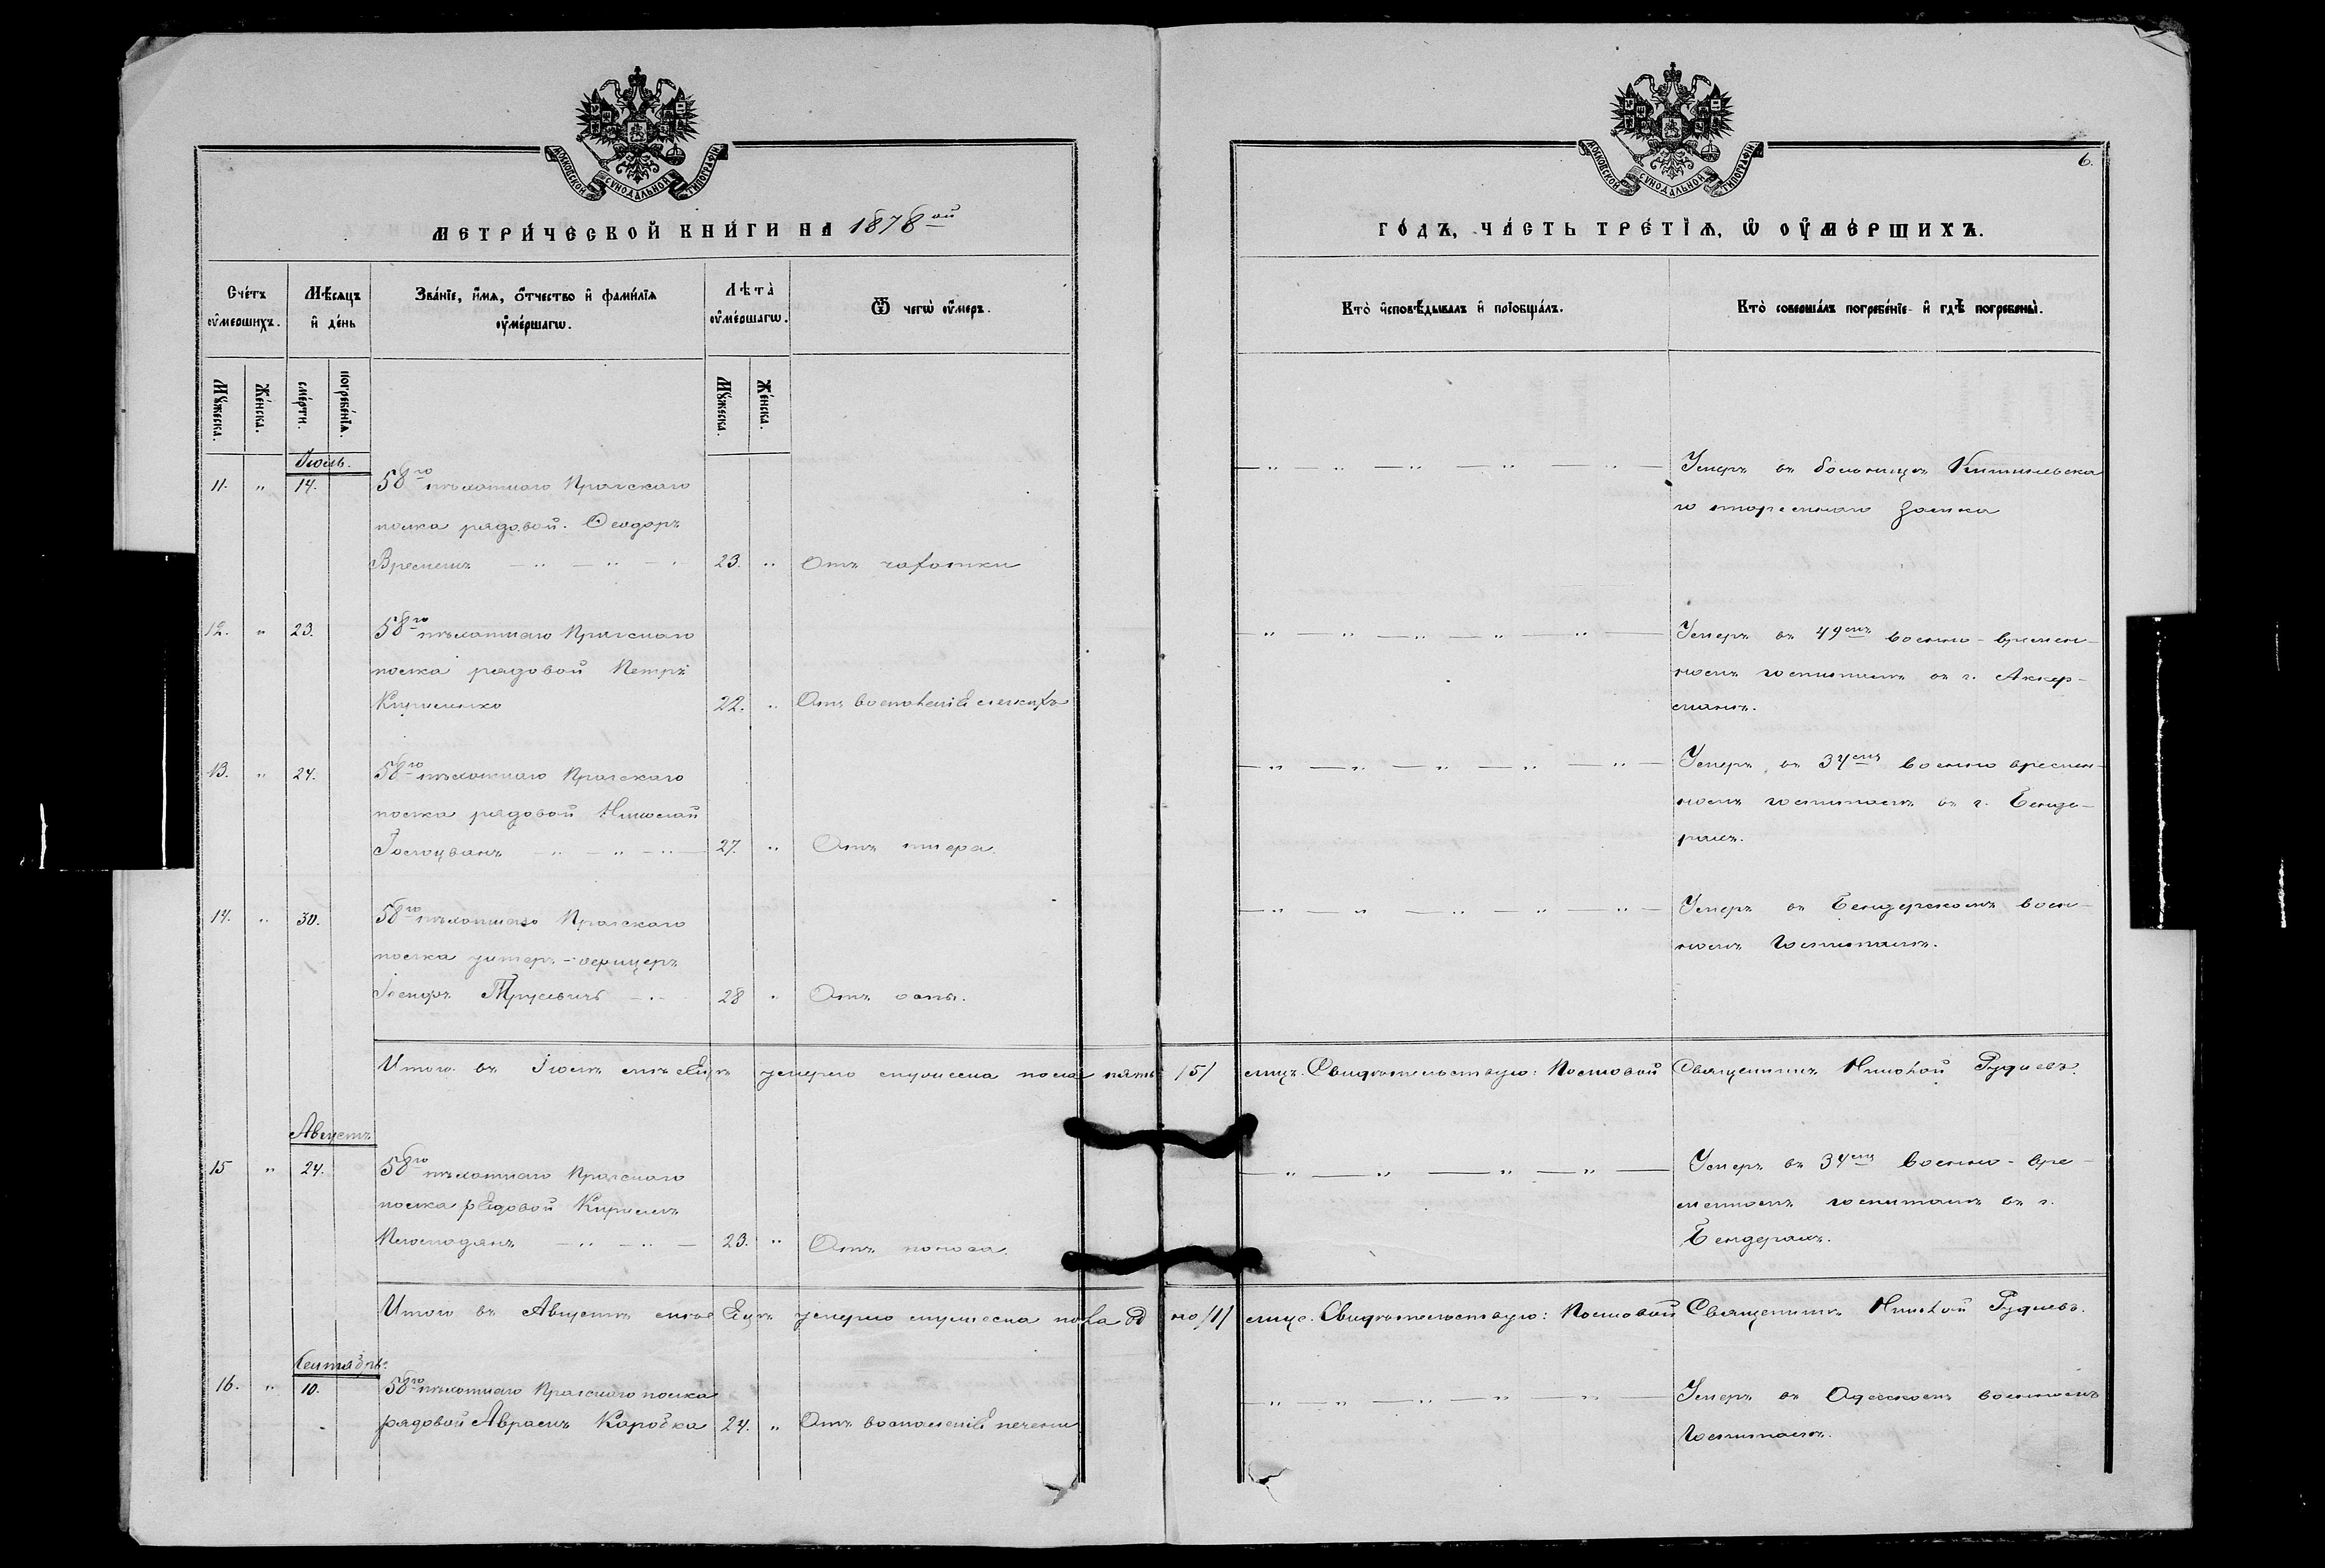 МОСКОВСКОЙ СУНОДАЛЬНОЙ ТИПОГРАФІИ
МЕТРИ́ЧЕСКОЙ КНИ́ГИ НА 1878ой
Сче́тъ ᲂу҆ме́ршихъ.
Мѣ́сяцъ и҆ де́нь
Зва́нїе, и҆́мя, ѻ҆́тчество и҆ фамі́лїя ᲂу҆ме́ршагѡ.
Лѣта̀ ᲂу҆ме́ршагѡ.
Ѿ чегѡ̀ ᲂу҆́меръ.
Мꙋ́жеска.
Же́нска.
сме́рти.
погребе́нїя.
Мꙋ́жеска.
Же́нска.
Іюль.
11. „ 14. 58го пѣхотнаго Прагскаго
полка рядовой. Ѳеодоръ
Времемъ — „ — „ — „ 23. „ Отъ чахотки
12. „ 23. 58го пѣхотнаго Прагскаго
полка рядовой Петръ
Кириленко 22. „ Отъ воспаленія легкихъ
13. „ 24. 58го пѣхотнаго Прагскаго
полка рядовой Николай
27. „ Отъ тифа.
14. „ 30. 58го пѣхотнаго Прагскаго
полка унтеръ-офицеръ
Трусевичъ — „ 28 „ Отъ оспы.
Итого въ Іюлѣ мѣсяцѣ умерло мужеска пола пять
Августъ
15 „ 24. 58го пѣхотнаго Прагскаго
полка рядовой Кириллъ
— „ — „ — 23. „ Отъ поноса.
Итого въ Августѣ мѣсяцѣ умерло мужеска пола од
Сентябрь.
16. „ 10. 58го пѣхотнаго Прагскаго полка
рядовой Аврамъ Коробка 24. „ Отъ воспаленія печени
МОСКОВСКОЙ СУНОДАЛЬНОЙ ТИПОГРАФІИ
6.
ГО́ДЪ, ЧА́СТЬ ТРЕ́ТЇѦ, Ѡ҆ ОУ҆МЕ́РШИХЪ.
Кто̀ и҆сповѣ́дывалъ и҆ прїобща́лъ.
Кто̀ соверша́лъ погребе́нїе и҆ гдѣ̀ погребены̀.
Умеръ въ больницѣ Кишиневска
го тюремнаго замка
Умеръ въ 49емъ военно-времен-
номъ госпиталѣ въ г. Аккер-
манѣ.
Умеръ въ 34емъ военно времен-
номъ госпиталѣ въ г. Бенде-
рахъ.
Умеръ въ Бендерскомъ воен-
номъ госпиталѣ.
/5/ лицъ. Свидѣтельствую: Полковой Священникъ Николай Гудіевъ.
Умеръ въ 34емъ военно-вре-
менномъ госпиталѣ въ г.
Бендерахъ.
но /1/ лице. Свидѣтельствую: Полковой Священникъ Николай Гудіевъ.
Умеръ въ Одесскомъ военномъ
госпиталѣ.